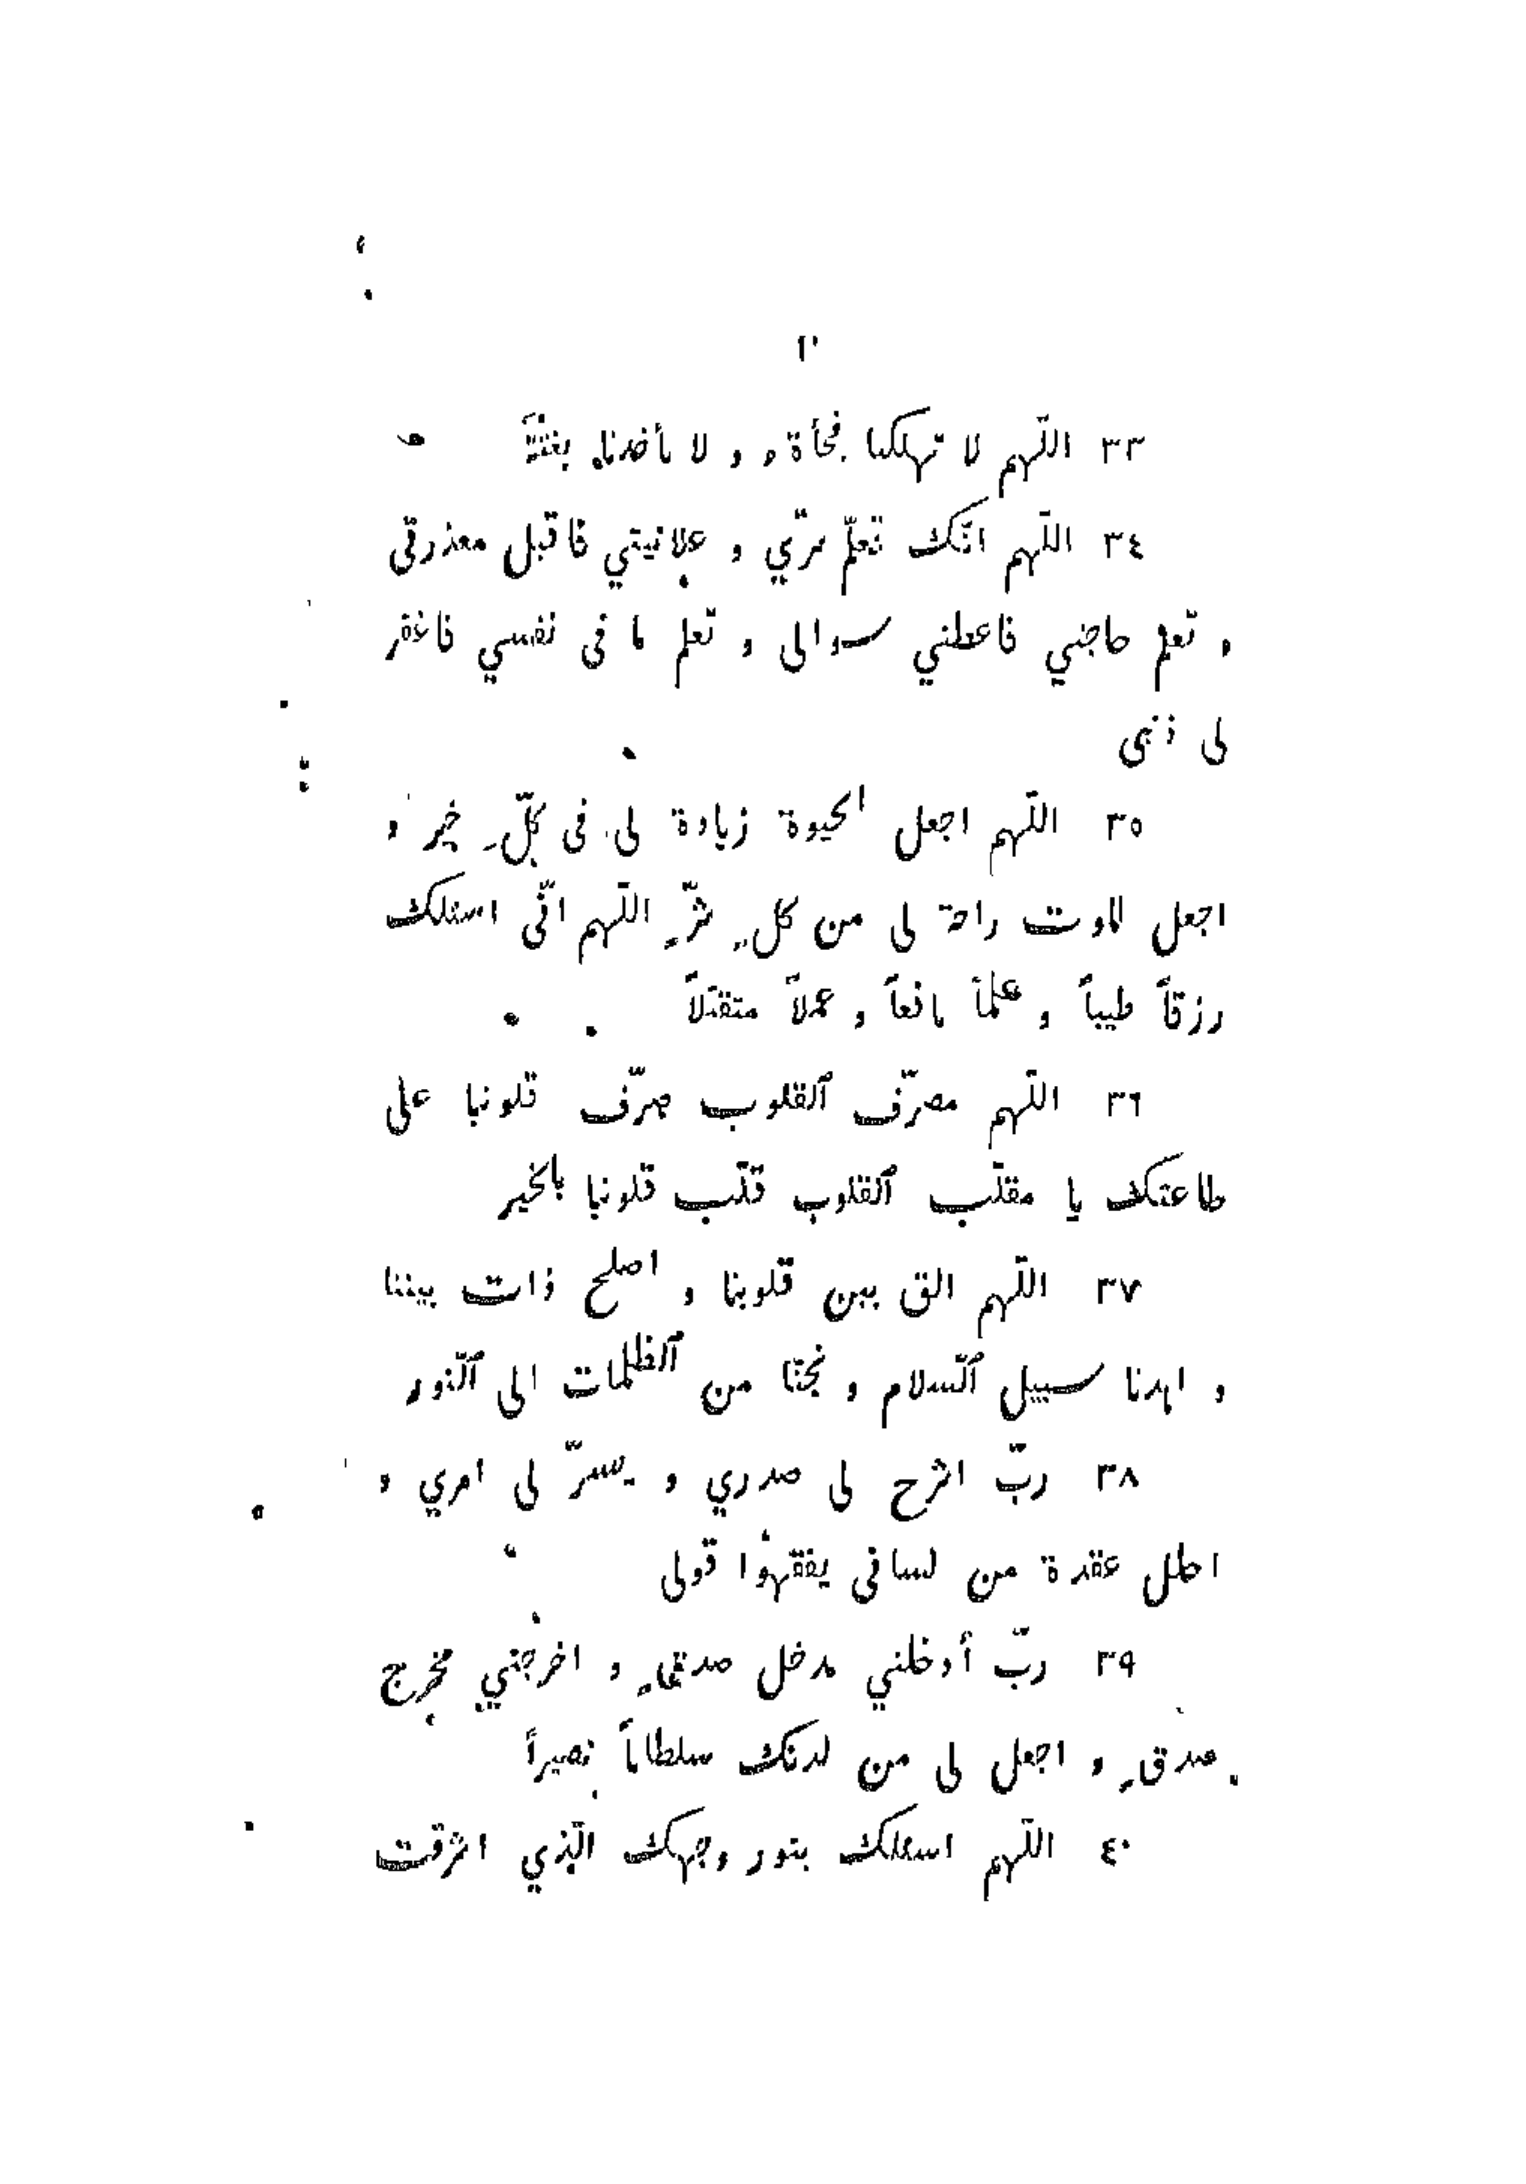 ٣٣ اللّهم لا تهلكنا فجأة و لا تأخذنا بغتةً
٣٤ اللّهم انّك تعلم سرّي و علانيتي فاقبل معذرتى
و تعلم حاجتي فاعطني سوالى و تعلم ما فى نفسي فاغفر
لى ذنبى
٣٥ اللّهم اجعل الحيوة زيادة لى فى كلّ خير و
اجعل الموت راحة لى من كل شرّ اللّهم انّى اسئلك
رزقاً طيباً و علماً نافعاً و عملاً متقبّلاً
٣٦ اللّهم مصرّف ٱلقلوب صرّف قلوبنا على
طاعتك يا مقلّب ٱلقلوب قلّب قلوبنا بالخير
٣٧ اللّهم الق بين قلوبنا و اصلح ذات بيننا
و اهدنا سبيل ٱلسّلام و نجّنا من ٱلظلمات الى ٱلنّور
٣٨ ربّ اشرح لى صدري و يسرّ لى امري و
احلل عقدة من لسانى يفقهوا قولى
٣٩ ربّ أدخلني مدخل صدقٍ و اخرجني مخرج
صدقٍ و اجعل لى من لدنك سلطاناً نصيراً
٤٠ اللّهم اسئلك بنور وجهك الّذي اشرقت